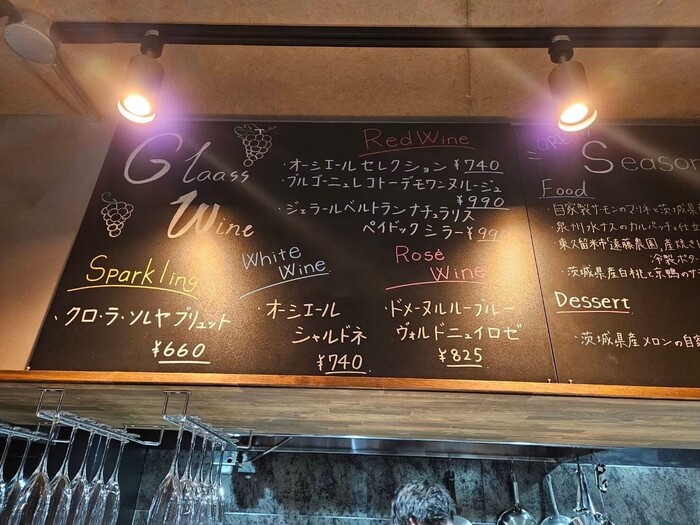 Glaass
Wine
Red Wine
・オーシエール セレクション ¥740
・ブルゴーニュ レ コトー デ モワンヌ ルージュ
¥990
・ジェラール ベルトラン ナチュラリス
ペイドック シラー ¥990
Sparkling
・クロ・ラ・ソルヤ ブリュット
¥660
White
Wine
・オーシエール
シャルドネ
¥740
Rosé
Wine
・ドメーヌ ル ルー ブルー
ヴォルドニュイ ロゼ
¥825
Season
Food
・自家製サーモンのマリネと茨城県
泉州水ナスのカルパッチョ仕立
東久留米市"遠藤農園"産焼き
冷製ポタ
・茨城県産白桃と京鴨のサ
Dessert
・茨城県産メロンの自家